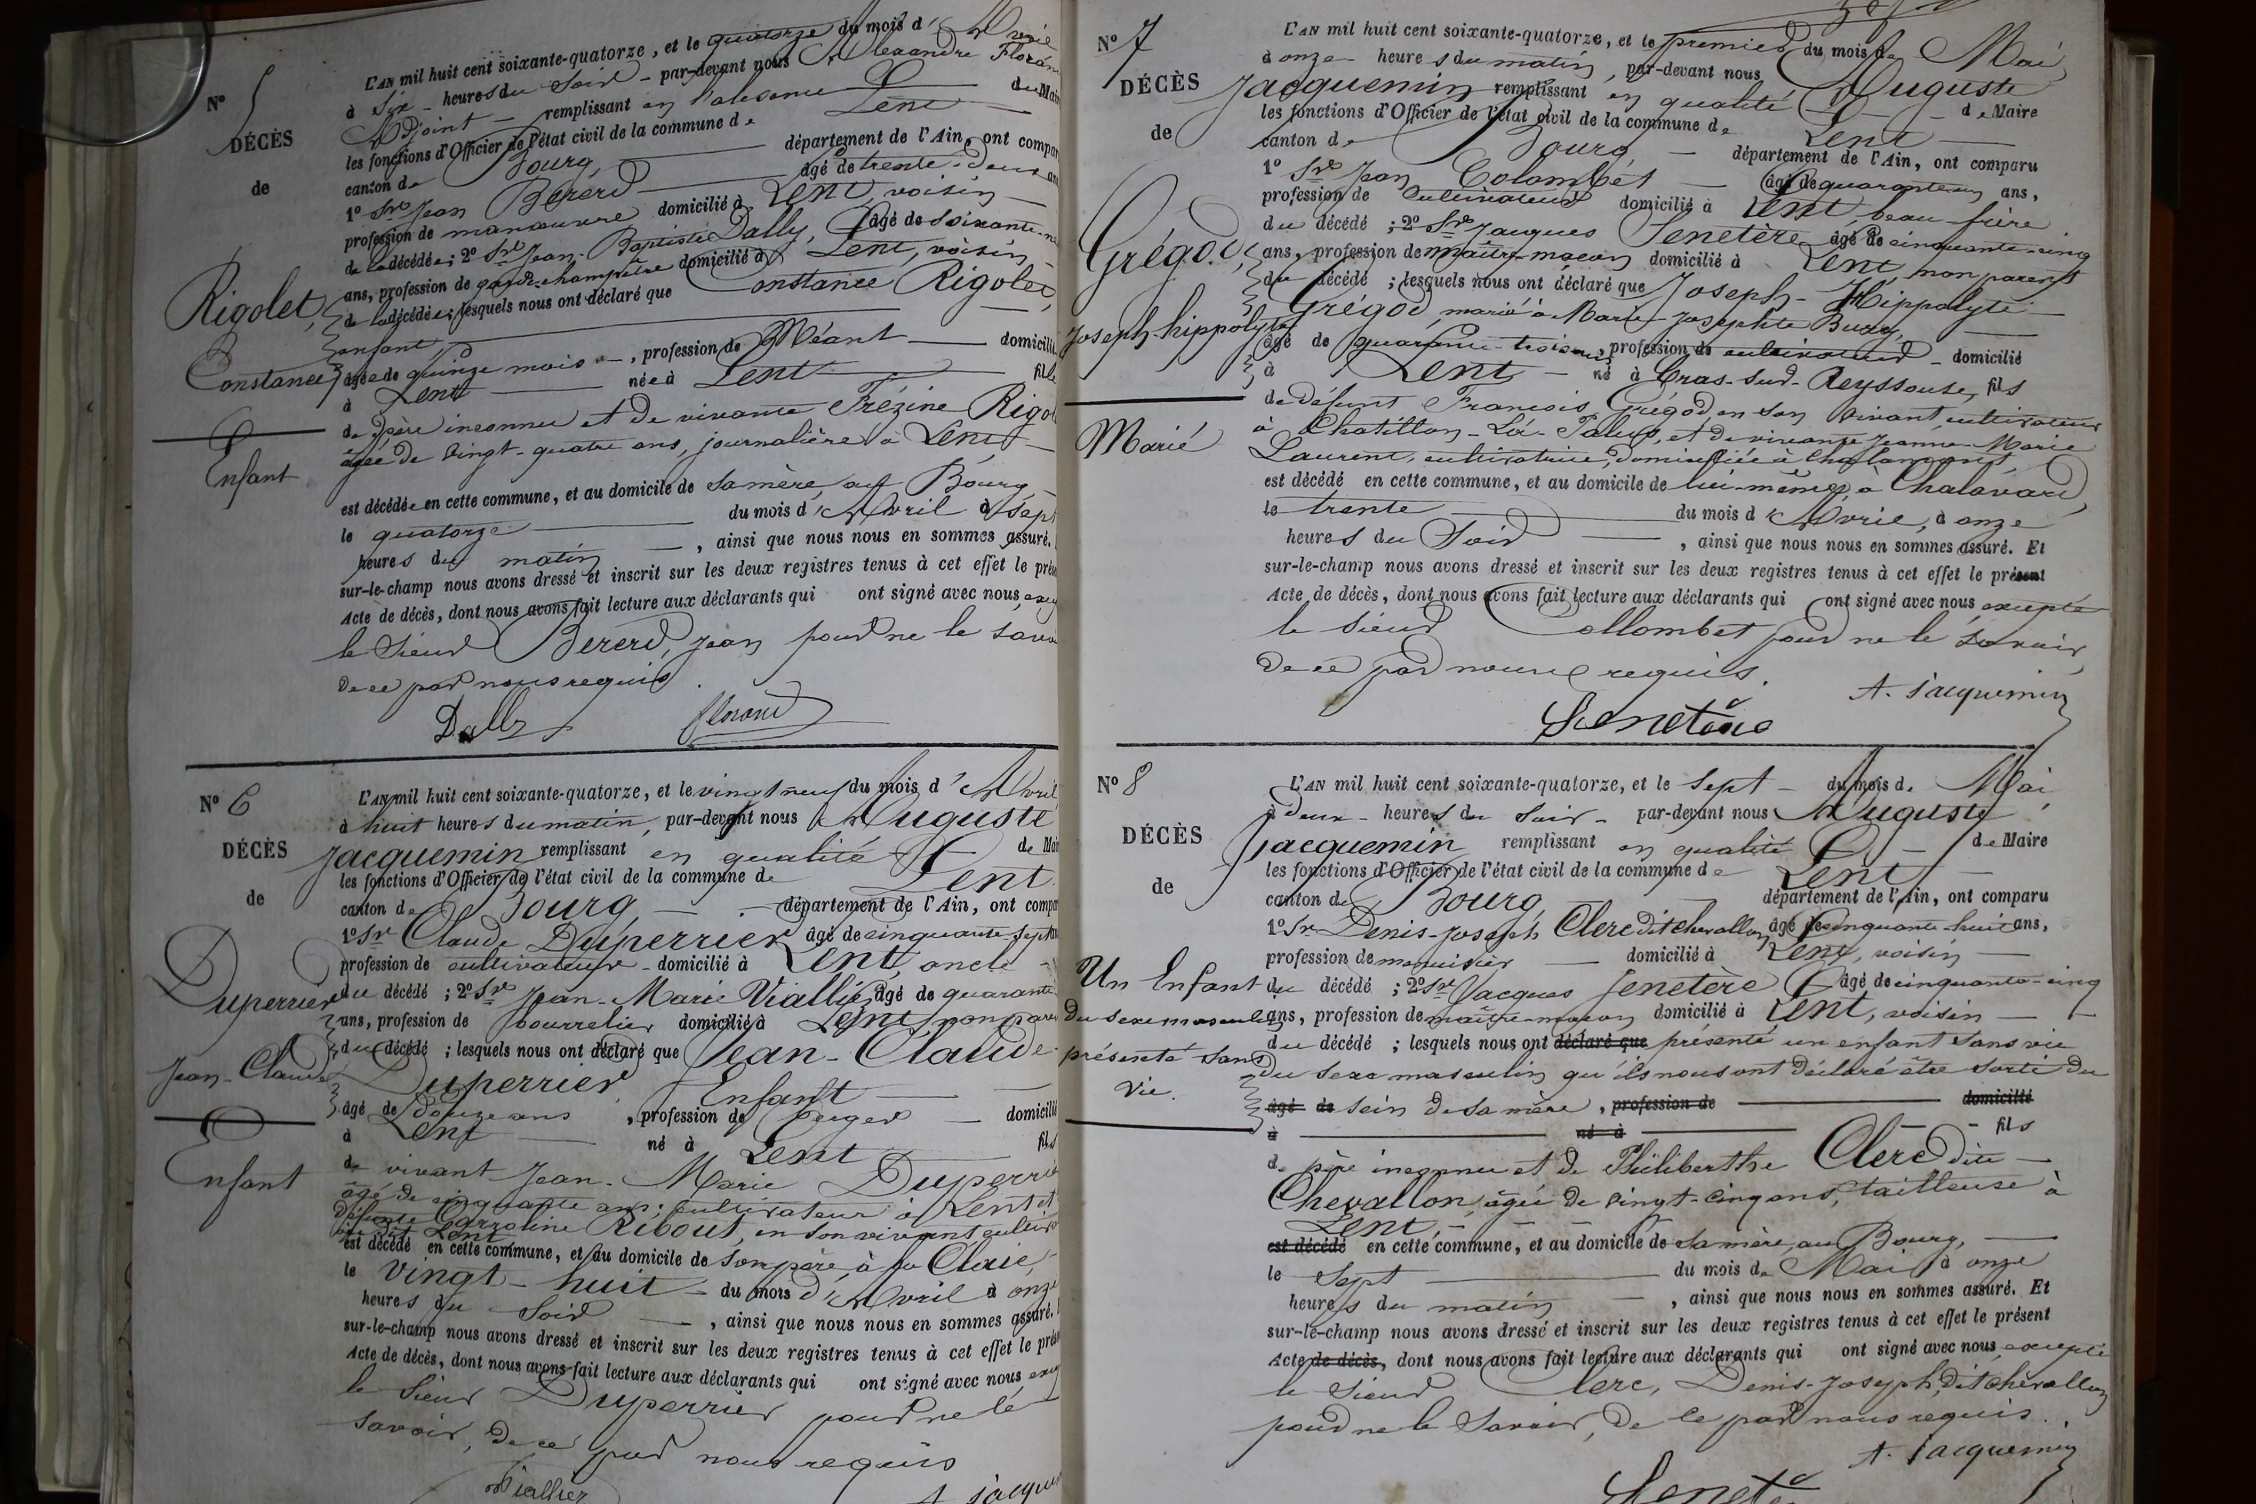 N° 5
DÉCÈS
de
Rigolet,
Constance
Enfant
L'AN mil huit cent soixante-quatorze, et le quatorze du mois d'Avril
à six heures du soir par-devant nous Alexandre Floran
Adjoint remplissant en l'absence du Mai
les fonctions d'Officier de l'état civil de la commune de Lent
canton de Bourg, département de l'Ain, ont compar
1° Sr Jean Bererd âgé de trente-deux ans
profession de manœuvre domicilié à Lent, voisin
de la décédée; 2° Sr Jean-Baptiste Dally, âgé de soixante-
ans, profession de garde-champêtre domicilié à Lent, voisin
de la décédée; lesquels nous ont déclaré que Constance Rigolet,
enfant
âgée de quinze mois, profession de Néant domicilié
à Lent née à Lent fille
de père inconnu et de vivante Frézine Rigol
âgée de vingt-quatre ans, journalière à Lent,
est décédée en cette commune, et au domicile de sa mère, au Bourg
le quatorze du mois d'Avril à sept
heures du matin, ainsi que nous nous en sommes assuré.
sur-le-champ nous avons dressé et inscrit sur les deux registres tenus à cet effet le prése
Acte de décès, dont nous avons fait lecture aux déclarants qui ont signé avec nous, exce
le sieur Bererd, Jean pour ne le savo
de ce par nous requis.
Dally Florand
N° 6
DÉCÈS
de
Duperrier
Jean-Claude
Enfant
L'AN mil huit cent soixante-quatorze, et le vingt neuf du mois d'Avril
à huit heures du matin, par-devant nous Auguste
Jacquemin remplissant en qualité de Mai
les fonctions d'Officier de l'état civil de la commune de Lent
canton de Bourg, département de l'Ain, ont compar
1° Sr Claude Duperrier âgé de cinquante-sept ans
profession de cultivateur domicilié à Lent, oncle
du décédé; 2° Sr Jean-Marie Viallier âgé de quarante
ans, profession de bourrelier domicilié à Lent, non paren
du décédé; lesquels nous ont déclaré que Jean-Claude
Duperrier Enfant
âgé de douze ans, profession de berger domicilié
à Lent né à Lent fils
de vivant Jean-Marie Duperrie
âgé de cinquante ans, cultivateur à Lent et
défunte Carroline Ribout, en son vivant cultiva
au dit Lent
est décédé en cette commune, et au domicile de son père, à la Claie,
le vingt-huit du mois d'Avril à onze
heures du soir, ainsi que nous nous en sommes assuré.
sur-le-champ nous avons dressé et inscrit sur les deux registres tenus à cet effet le prése
Acte de décès, dont nous avons fait lecture aux déclarants qui ont signé avec nous, exce
le sieur Duperrier pour ne le
savoir, de ce par nous requis
Viallier A. Jacque
N° 7
DÉCÈS
de
Grégod,
Joseph hippolyte
Marié
L'AN mil huit cent soixante-quatorze, et le premier du mois de Mai
à onze heures du matin, par-devant nous Auguste
Jacquemin remplissant en qualité de Maire
les fonctions d'Officier de l'état civil de la commune de Lent
canton de Bourg, département de l'Ain, ont comparu
1° Sr Jean Colombet âgé de quarante-un ans,
profession de cultivateur domicilié à Lent, beau-frère
du décédé; 2° Sr Jacques Senetère âgé de cinquante-cinq
ans, profession de maître-maçon domicilié à Lent, non parent
du décédé; lesquels nous ont déclaré que Joseph-Hippolyte
Grégod, marié à Marie-Josephte Buzy,
âgé de quarante-trois ans, profession de cultivateur domicilié
à Lent né à Cras-sur-Reyssouse, fils
de défunt François Grégod, en son vivant, cultivateur
à Chatillon-La-Palud, et de vivante Jeanne-Marie
Laurent, cultivatrice, domiciliée à Chalamont,
est décédé en cette commune, et au domicile de lui-même, à Chalavard,
le trente du mois d'Avril, à onze
heures du soir, ainsi que nous nous en sommes assuré. Et
sur-le-champ nous avons dressé et inscrit sur les deux registres tenus à cet effet le présent
Acte de décès, dont nous avons fait lecture aux déclarants qui ont signé avec nous, excepté
le sieur Collombet pour ne le savoir,
de ce par nous requis.
A. Jacquemin
Senetère
N° 8
DÉCÈS
de
Un Enfant
du sexe masculin
présenté sans
Vie.
L'AN mil huit cent soixante-quatorze, et le sept du mois de Mai,
à deux heures du soir par-devant nous Auguste
Jacquemin remplissant en qualité de Maire
les fonctions d'Officier de l'état civil de la commune de Lent
canton de Bourg, département de l'Ain, ont comparu
1° Sr Denis-Joseph Clerc dit Chevallon, âgé de cinquante-huit ans,
profession de menuisier domicilié à Lent, voisin
du décédé; 2° Sr Jacques Senetère âgé de cinquante-cinq
ans, profession de maître-maçon domicilié à Lent, voisin
du décédé; lesquels nous ont déclaré que présenté un enfant sans vie
du sexe masculin qu'ils nous ont déclaré être sorti du
âgé de sein de sa mère, profession de domicilié
à né à fils
de père inconnu et de Philiberthe Clerc dite
Chevallon, âgée de vingt-cinq ans, tailleuse à
Lent,
est décédé en cette commune, et au domicile de sa mère, au Bourg,
le sept du mois de Mai à onze
heures du matin, ainsi que nous nous en sommes assuré. Et
sur-le-champ nous avons dressé et inscrit sur les deux registres tenus à cet effet le présent
Acte de décès, dont nous avons fait lecture aux déclarants qui ont signé avec nous, excepté
le sieur Clerc, Denis-Joseph, dit Chevallon
pour ne le savoir, de ce par nous requis.
A. Jacquemin
Senetè